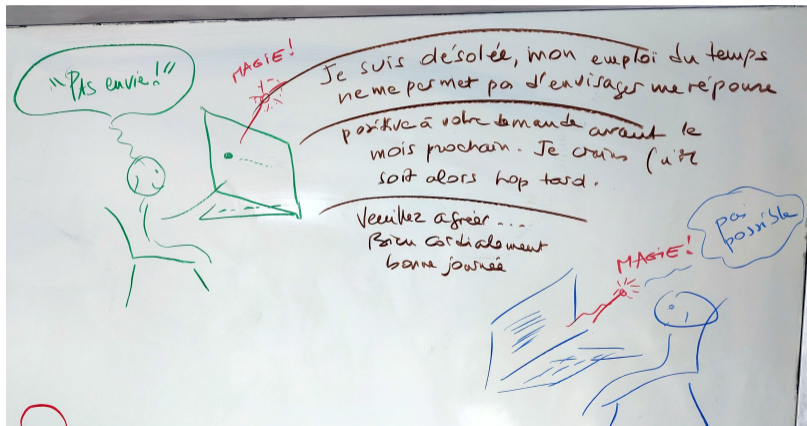 "PAS envie!"
MAGIE!
Je suis désolée, mon emploi du temps
ne me permet pas d'envisager une réponse
positive à votre demande avant le
mois prochain. Je crains qu'il
soit alors trop tard.
Veuillez agréer...
Bien cordialement
bonne journée
MAGIE!
pas
possible